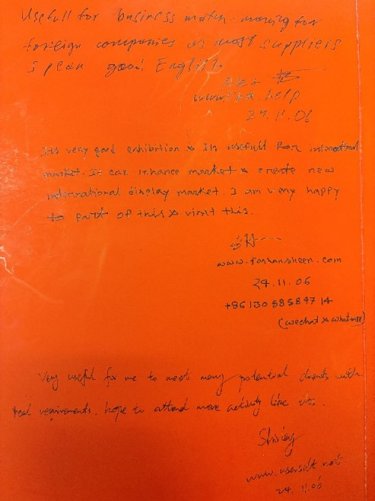 Usefull for business match-making for
foreign companies as most suppliers
speak good English.
help
24.11.06
Its very good exhibition & its usefull for international
market. It can inhance market & create new
international display market I am very happy
to part of this & visit this.
www.foshansheen.com
24.11.06
(wechat & whatsapp)
Very useful for me to meet many potential clients with
real requirements. hope to attend more activity like this.
Shirley
24.11.06